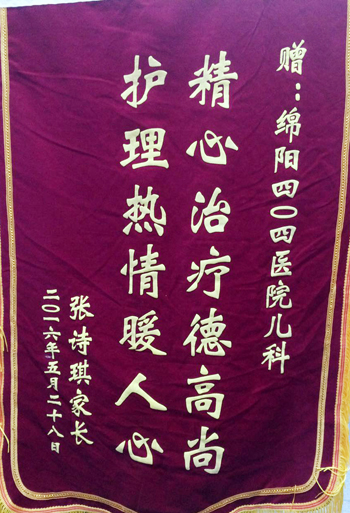 赠：绵阳四〇四医院儿科
精心治疗德高尚
护理热情暖人心
张诗琪家长
二〇一六年五月二十八日